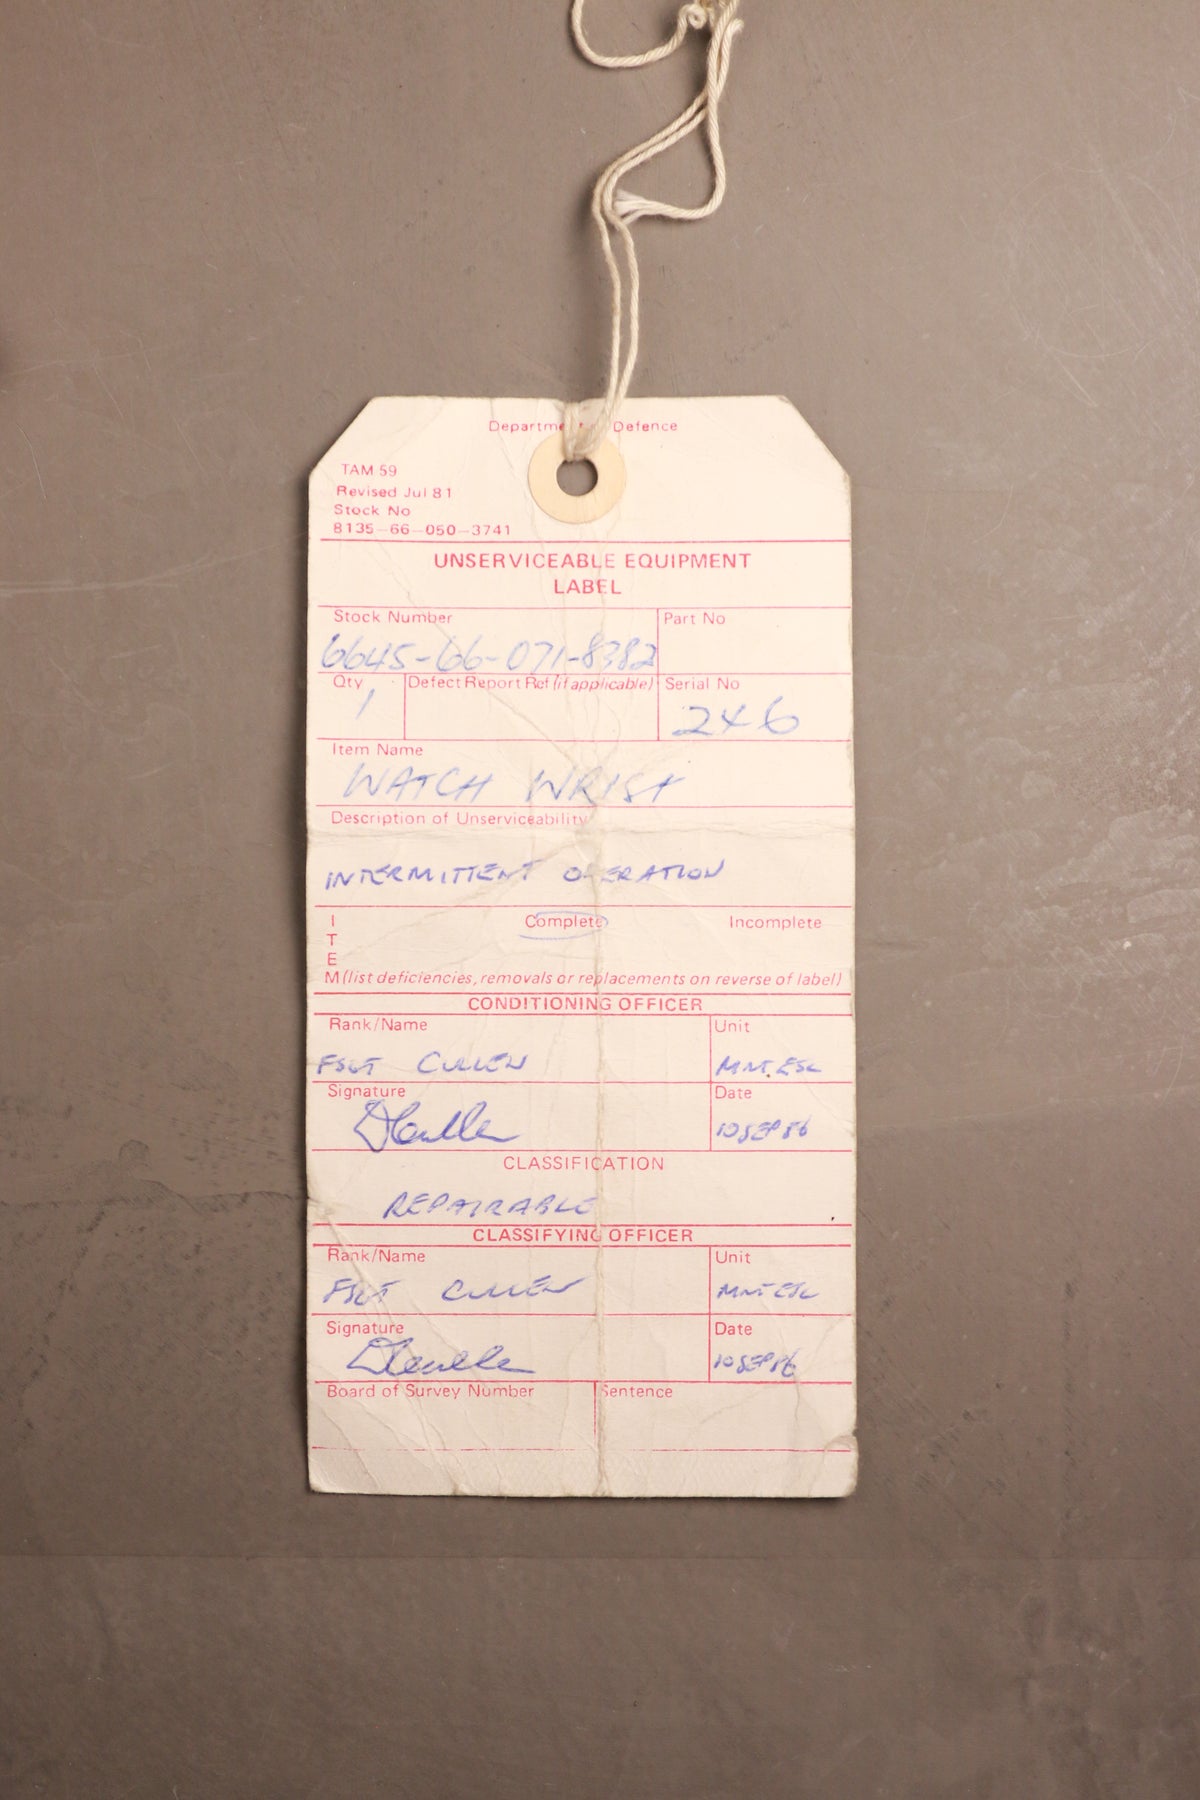 Department of Defence
TAM 59
Revised Jul 81
Stock No
8135-66-050-3741
UNSERVICEABLE EQUIPMENT
LABEL
Stock Number Part No
6645-66-071-8382
Qty Defect Report Ref (if applicable) Serial No
1 246
Item Name
WATCH WRIST
Description of Unserviceability
INTERMITTENT OPERATION
ITEM Complete Incomplete
(list deficiencies, removals or replacements on reverse of label)
CONDITIONING OFFICER
Rank/Name Unit
FSGT CULLEN MNT.ESC
Signature Date
10 SEP 86
CLASSIFICATION
REPAIRABLE
CLASSIFYING OFFICER
Rank/Name Unit
FSGT CULLEN MNT ESC
Signature Date
10 SEP 86
Board of Survey Number Sentence